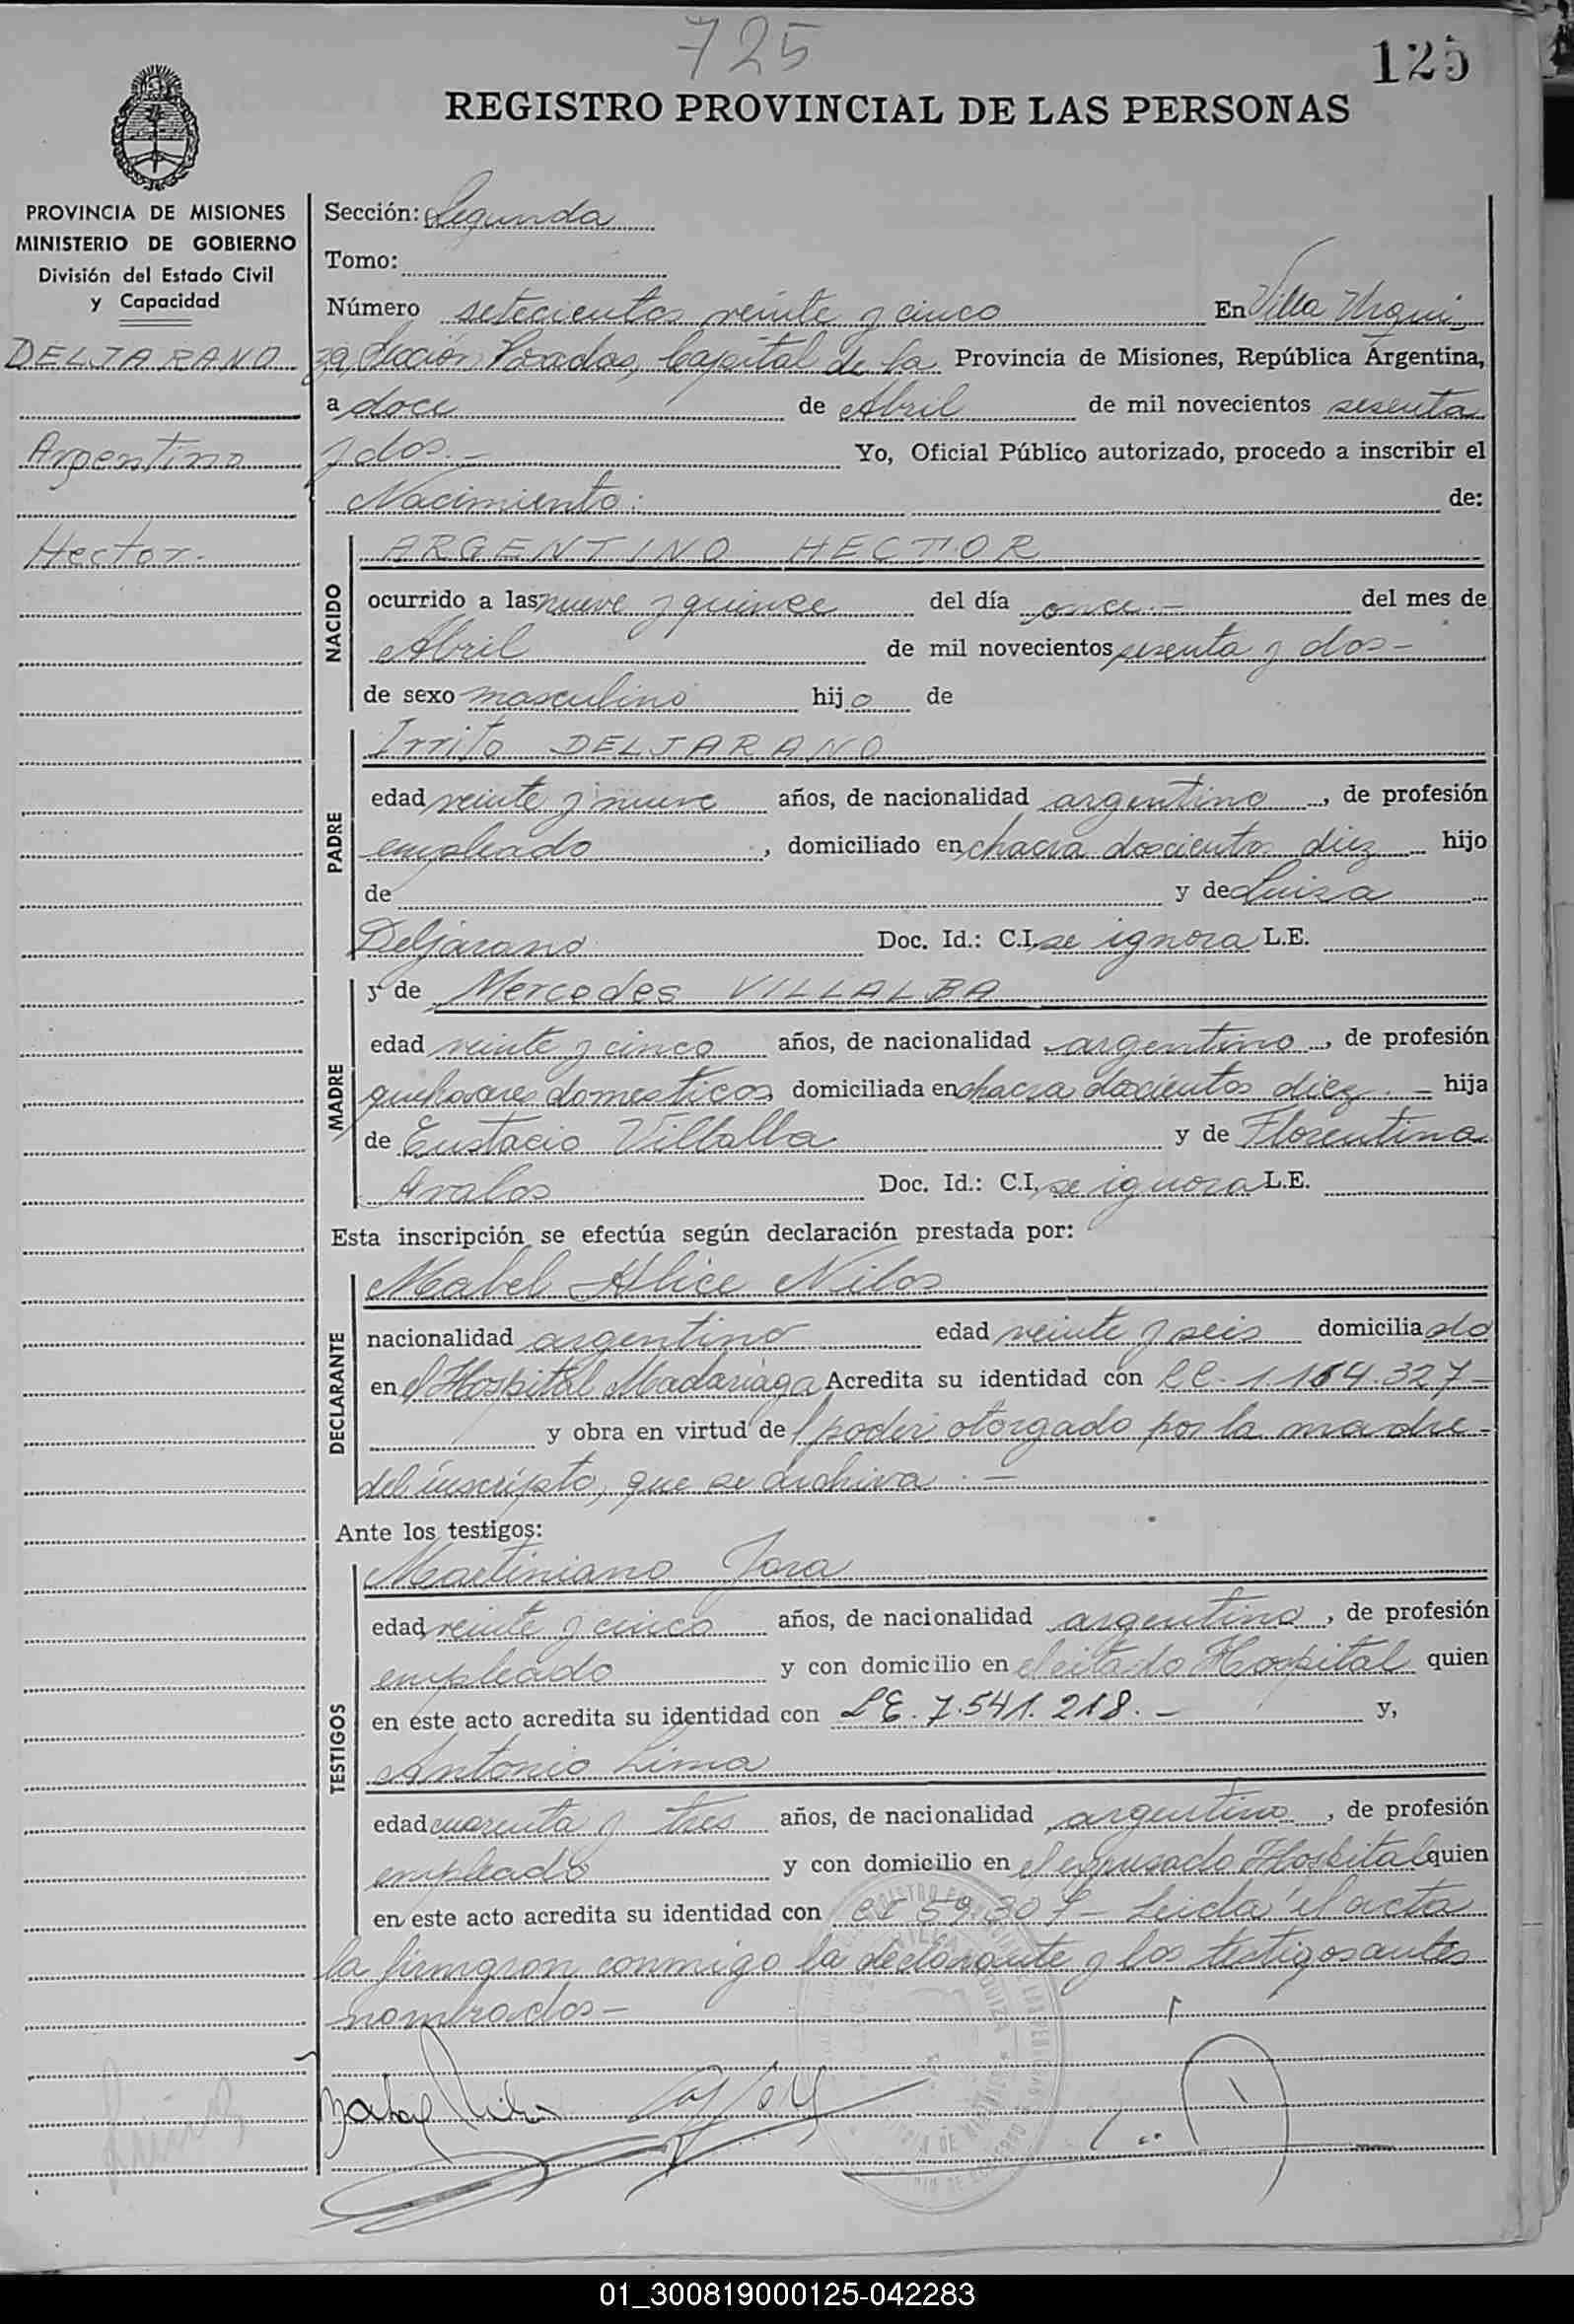 725
125
REGISTRO PROVINCIAL DE LAS PERSONAS
PROVINCIA DE MISIONES
MINISTERIO DE GOBIERNO
División del Estado Civil
y Capacidad
DELJARANO
Argentino
Hector.-
Sección: Segunda
Tomo:
Número setecientos veinte y cinco En Villa Urqui
za, Sección Posadas, Capital de la Provincia de Misiones, República Argentina,
a doce de Abril de mil novecientos sesenta
y dos.- Yo, Oficial Público autorizado, procedo a inscribir el
Nacimiento: de:
NACIDO
ARGENTINO HECTOR
ocurrido a las nueve y quince del día once.- del mes de
Abril de mil novecientos sesenta y dos-
de sexo masculino hijo de
PADRE
Irrito DELJARANO
edad veinte y nueve años, de nacionalidad argentino, de profesión
empleado, domiciliado en chacra doscientos diez hijo
de y de Luisa
Deljarano Doc. Id.: C.I. se ignora L.E.
MADRE
y de Mercedes VILLALBA
edad veinte y cinco años, de nacionalidad argentino, de profesión
quehaceres domesticos domiciliada en chacra doscientos diez.- hija
de Eustacio Villalba y de Florentina
Avalos Doc. Id.: C.I. se ignora L.E.
Esta inscripción se efectúa según declaración prestada por:
DECLARANTE
Mabel Alice Nilos
nacionalidad argentino edad veinte y seis domiciliado
en el Hospital Madariaga Acredita su identidad con LC. 1.164.327-
y obra en virtud del poder otorgado por la madre-
del inscripto, que se archiva.-
Ante los testigos:
TESTIGOS
Martiniano Jara
edad veinte y cinco años, de nacionalidad argentino, de profesión
empleado y con domicilio en el citado Hospital quien
en este acto acredita su identidad con LE. 7.541.218.- y,
Antonio Lima
edad cuarenta y tres años, de nacionalidad argentino, de profesión
empleado y con domicilio en el expresado Hospital quien
en este acto acredita su identidad con CI 59.307- Leida el acta
la firmaron conmigo la declarante y los testigos antes
nombrados-
01_300819000125-042283